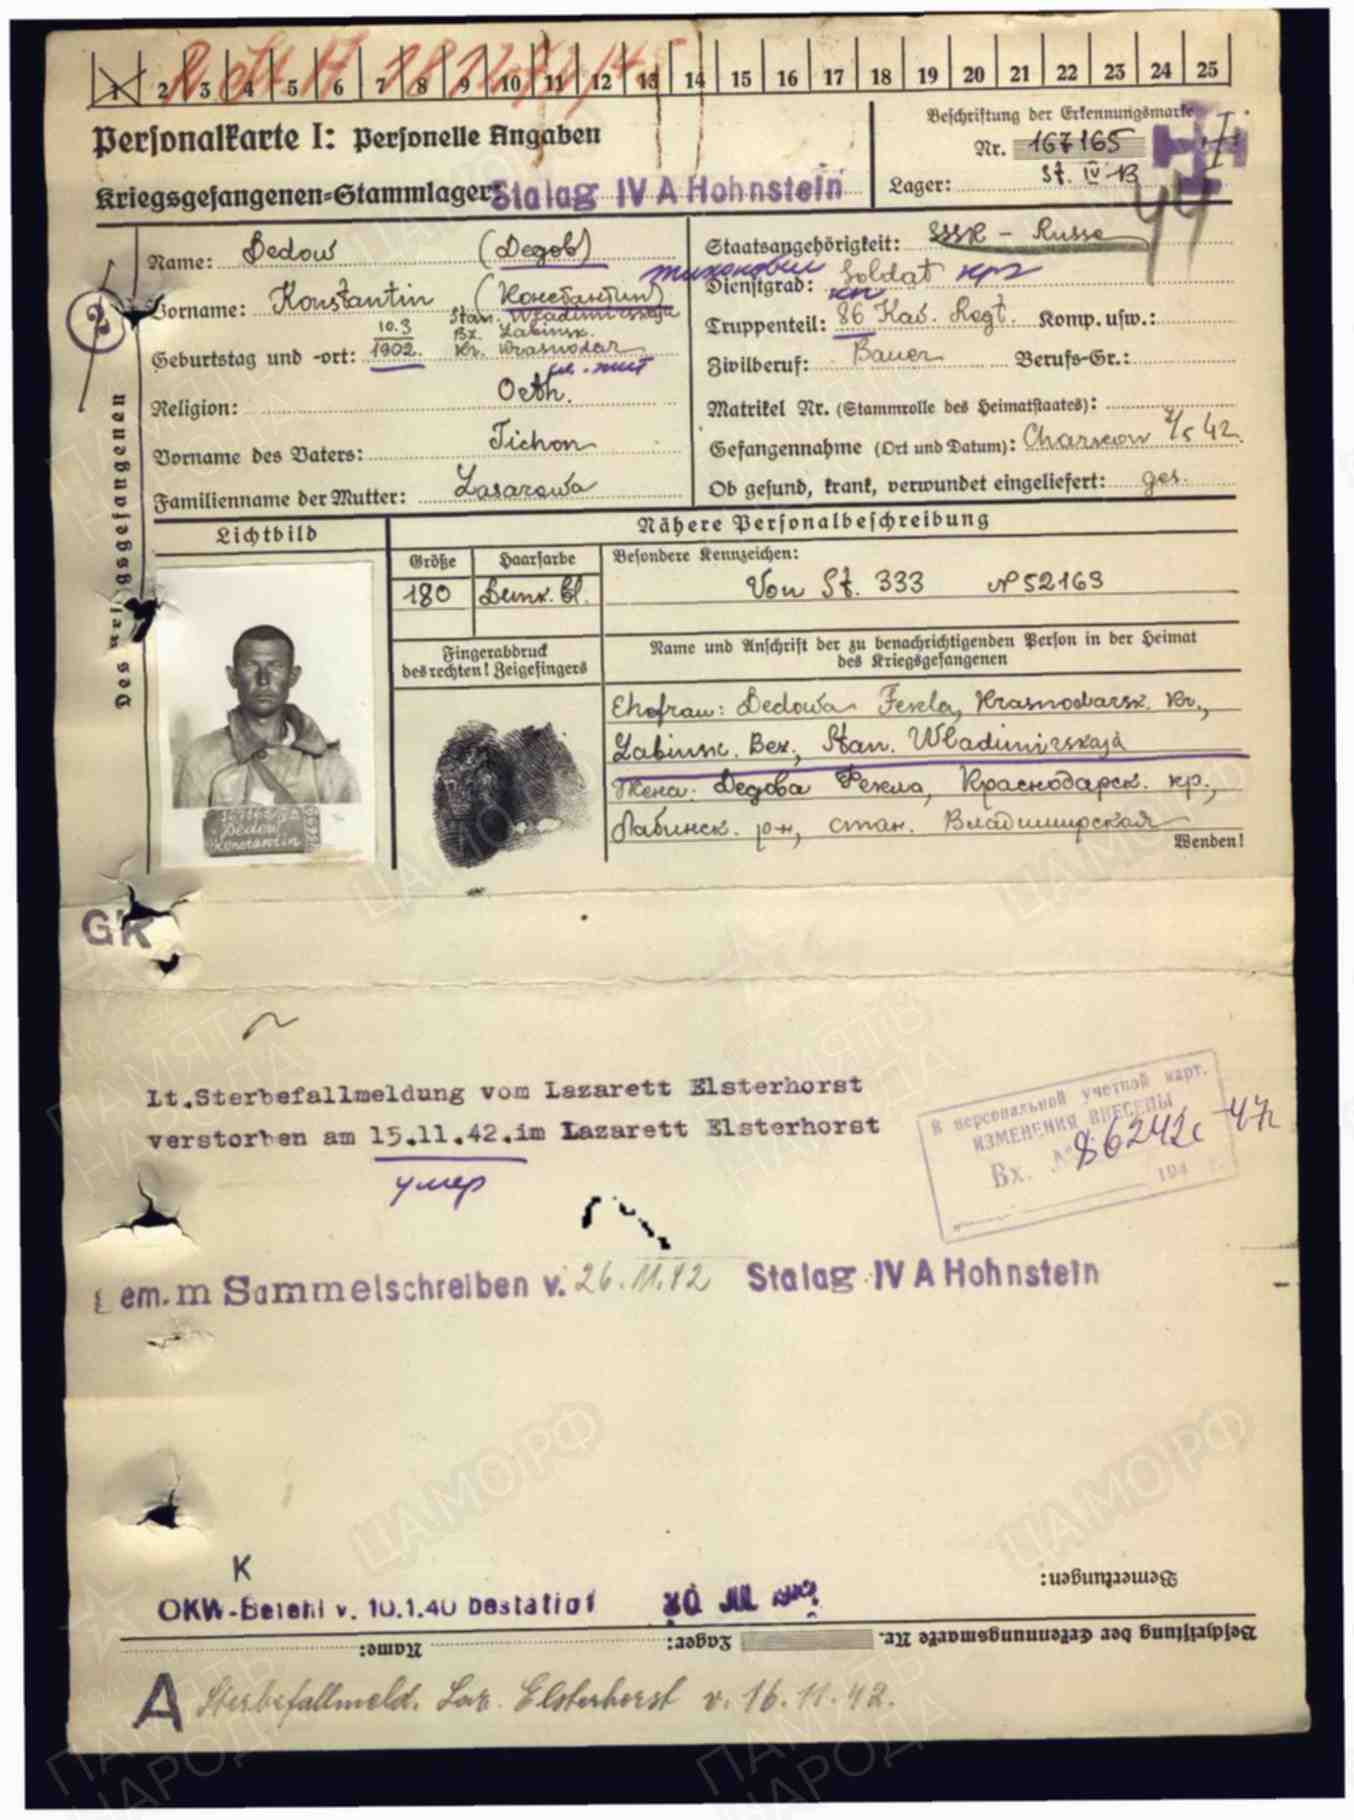 1 2 3 4 5 6 7 8 9 10 11 12 13 14 15 16 17 18 19 20 21 22 23 24 25
Personalkarte I: Personelle Angaben
Kriegsgefangenen-Stammlager: Stalag IV A Hohnstein
Beschriftung der Erkennungsmarke
Nr. 167165
Lager: St. IV B
Des Kriegsgefangenen
2
Name: Dedow (Дедов)
Vorname: Konstantin (Константин) тихонович
Geburtstag und -ort: 10.3 1902. Stan. Wladimirskaja
Bz. Labinsk.
Kr. Krasnodar
Religion: Orth.
Vorname des Vaters: Tichon
Familienname der Mutter: Lasarowa
Staatsangehörigkeit: SSSR - Russe
Dienstgrad: Soldat кр-ц
Truppenteil: 86 Kav. Regt. Komp. usw.:
Zivilberuf: Bauer Berufs-Gr.:
Matrikel Nr. (Stammrolle des Heimatstaates):
Gefangennahme (Ort und Datum): Charkow /5 42.
Ob gesund, krank, verwundet eingeliefert: ges.
Lichtbild
Nähere Personalbeschreibung
Größe Haarfarbe Besondere Kennzeichen:
180 Dunk. bl. Von St. 333 № 52163
Fingerabdruck
des rechten! Zeigefingers
Name und Anschrift der zu benachrichtigenden Person in der Heimat
des Kriegsgefangenen
Ehefrau: Dedowa Fekla, Krasnodarsk. Kr.,
Labinsk. Bez., Stan. Wladimirskaja
Жена: Дедова Фекла, Краснодарск. кр.,
Лабинск. р-н, стан. Владимирская
Wenden!
Dedow
Konstantin
GK
Lt.Sterbefallmeldung vom Lazarett Elsterhorst
verstorben am 15.11.42.im Lazarett Elsterhorst
умер
В персональной учетной карт.
ИЗМЕНЕНИЯ ВНЕСЕНЫ
Вх. № 86242с -47г
194 г.
em. m Sammelschreiben v. 26.11.42 Stalag IV A Hohnstein
Bemerkungen:
K
OKW-Befehl v. 10.1.40 bestätigt 30 JUL
Beschriftung der Erkennungsmarke Nr. Lager: Name:
A Sterbefallmeld. Laz. Elsterhorst v. 16.11.42.
ПАМЯТЬ НАРОДА
ЦАМО.РФ